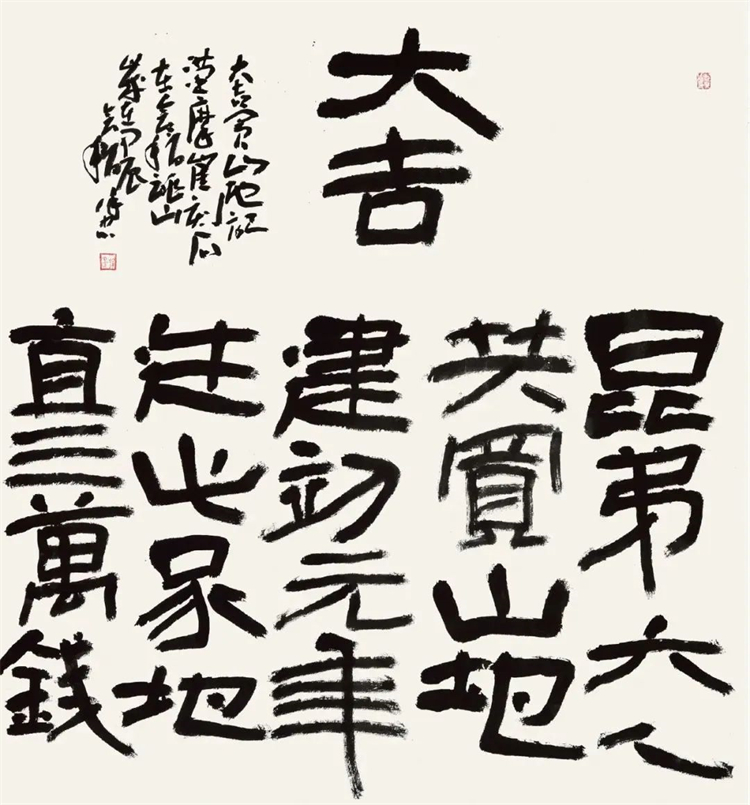 大吉
昆弟六人
共買山地
建初元年
造此冢地
直三萬錢
大吉買山地記
漢摩崖刻石
在會稽跳山
歲在甲辰